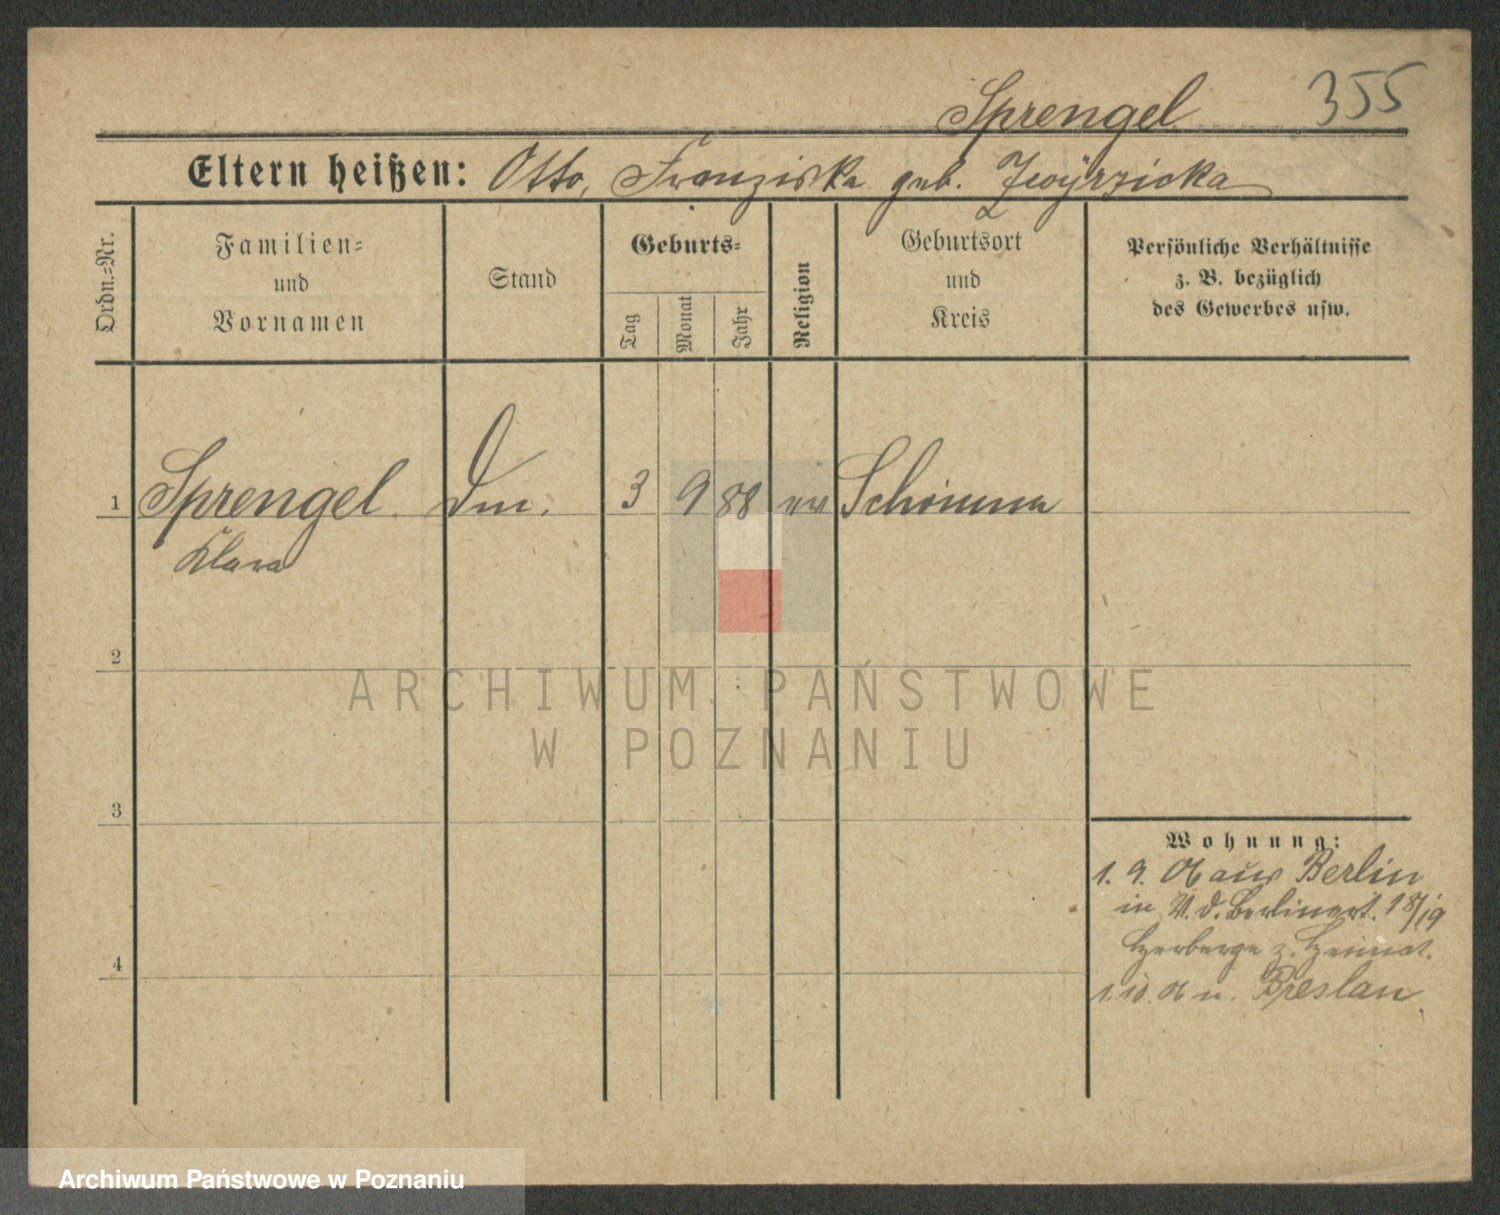 355
Sprengel
Eltern heißen: Otto, Franziska geb.
Ordn.-Nr.
Familien-
und
Vornamen
Stand
Geburts-
Tag
Monat
Jahr
Religion
Geburtsort
und
Kreis
Persönliche Verhältnisse
z. B. bezüglich
des Gewerbes usw.
1 Sprengel 3 9 88 ev
Klara
2
ARCHIWUM PAŃSTWOWE
W POZNANIU
3
Wohnung:
1. 9. 06 aus Berlin
in V. d. Berlinert. 18/19
Herberge z. Heimat.
1. 10. 06 n. Breslau
4
Archiwum Państwowe w Poznaniu